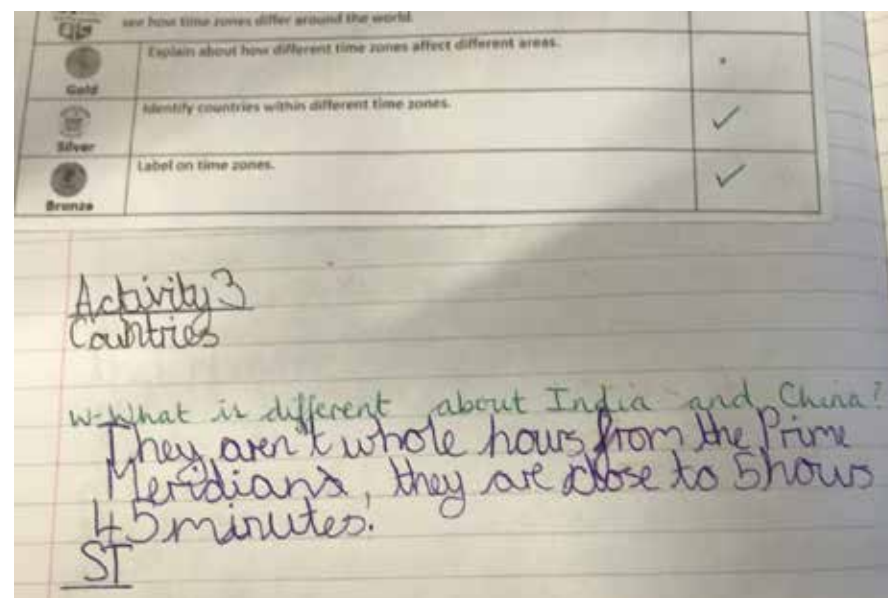 see how time zones differ around the world.
Explain about how different time zones affect different areas.
Gold
Identify countries within different time zones.
Silver
Label on time zones.
Bronze
Activity 3
Countries
W-What is different about India and China?
They aren't whole hours from the Prime
Meridians, they are close to 5 hours
45 minutes.
ST